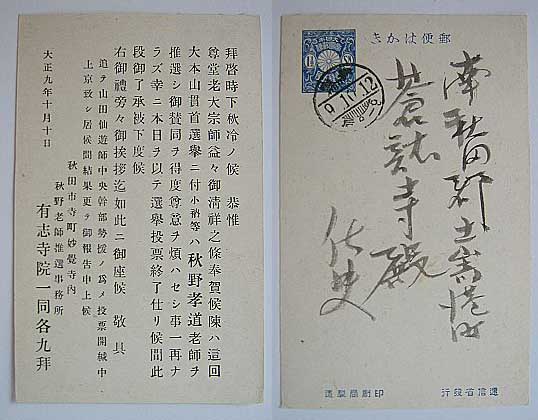 拜啓時下秋冷ノ候　恭惟
尊堂老大宗師益々御淸祥之條奉賀候陳ハ這回
大本山貫首選擧ニ付小衲等ハ秋野孝道老師ヲ
推選シ御賛同ヲ得度尊意ヲ煩ハセシ事一再ナ
ラズ幸ニ本日ヲ以テ選擧投票終了仕リ候間此
段御了承被下度候
右御禮旁々御挨拶迄如此ニ御座候　敬具
追テ山田仙遊師中央幹部勢援ノ爲メ投票開城中
上京致シ居候間結果更ラ御報告申上候
秋田市寺町妙覺寺內
秋野老師推選事務所
有志寺院一同各九拜
大正九年十月十日
郵便はかき
南秋田郡土崎港町
蒼龍寺殿
侍史
9.10.12
印刷局製造
遞信省發行